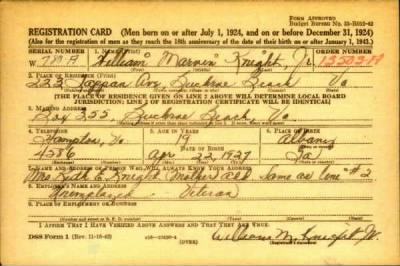 FORM APPROVED
REGISTRATION CARD (Men born on or after July 1, 1924, and on or before December 31, 1924)
(Also for the registration of men as they reach the 18th anniversary of the date of their birth on or after January 1, 1943.)
SERIAL NUMBER 1. NAME (Print) ORDER NUMBER
William Marvin Knight, Jr.
2. PLACE OF RESIDENCE (Print)
223 Tappan Ave Buckroe Beach, Va
(THE PLACE OF RESIDENCE GIVEN ON LINE 2 ABOVE WILL DETERMINE LOCAL BOARD
JURISDICTION; LINE 2 OF REGISTRATION CERTIFICATE WILL BE IDENTICAL)
3. MAILING ADDRESS
Box 255, Buckroe Beach, Va
4. TELEPHONE 5. AGE IN YEARS 6. PLACE OF BIRTH
Hampton, Va. 19 Albany
DATE OF BIRTH
4286 Apr 22, 1927 Ga
7. NAME AND ADDRESS OF PERSON WHO WILL ALWAYS KNOW YOUR ADDRESS
Mrs Ruth E Knight (Mother) Same as line #2
8. EMPLOYER'S NAME AND ADDRESS
Unemployed Veteran
9. PLACE OF EMPLOYMENT OR BUSINESS
I AFFIRM THAT I HAVE VERIFIED ABOVE ANSWERS AND THAT THEY ARE TRUE.
DSS Form 1 (OVER) William M. Knight Jr.